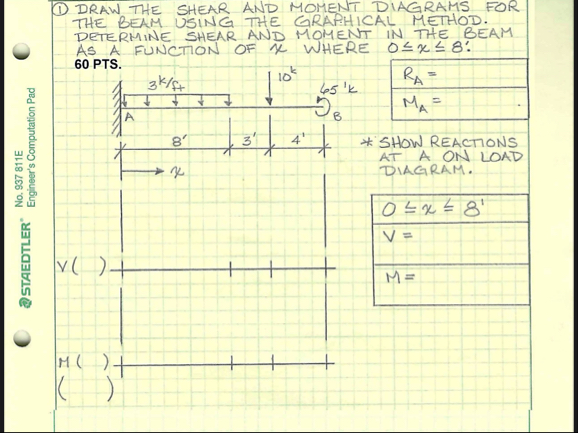 ① DRAW THE SHEAR AND MOMENT DIAGRAMS FOR
THE BEAM USING THE GRAPHICAL METHOD.
DETERMINE SHEAR AND MOMENT IN THE BEAM
AS A FUNCTION OF x WHERE 0≤x≤8'.
60 PTS.
3k/ft
10k
65 'k
A
B
8'
3'
4'
x
RA =
MA =
* SHOW REACTIONS
AT A ON LOAD
DIAGRAM.
0 ≤ x ≤ 8'
V =
M =
V ( )
M ( )
( )
No. 937 811E
Engineer's Computation Pad
STAEDTLER®